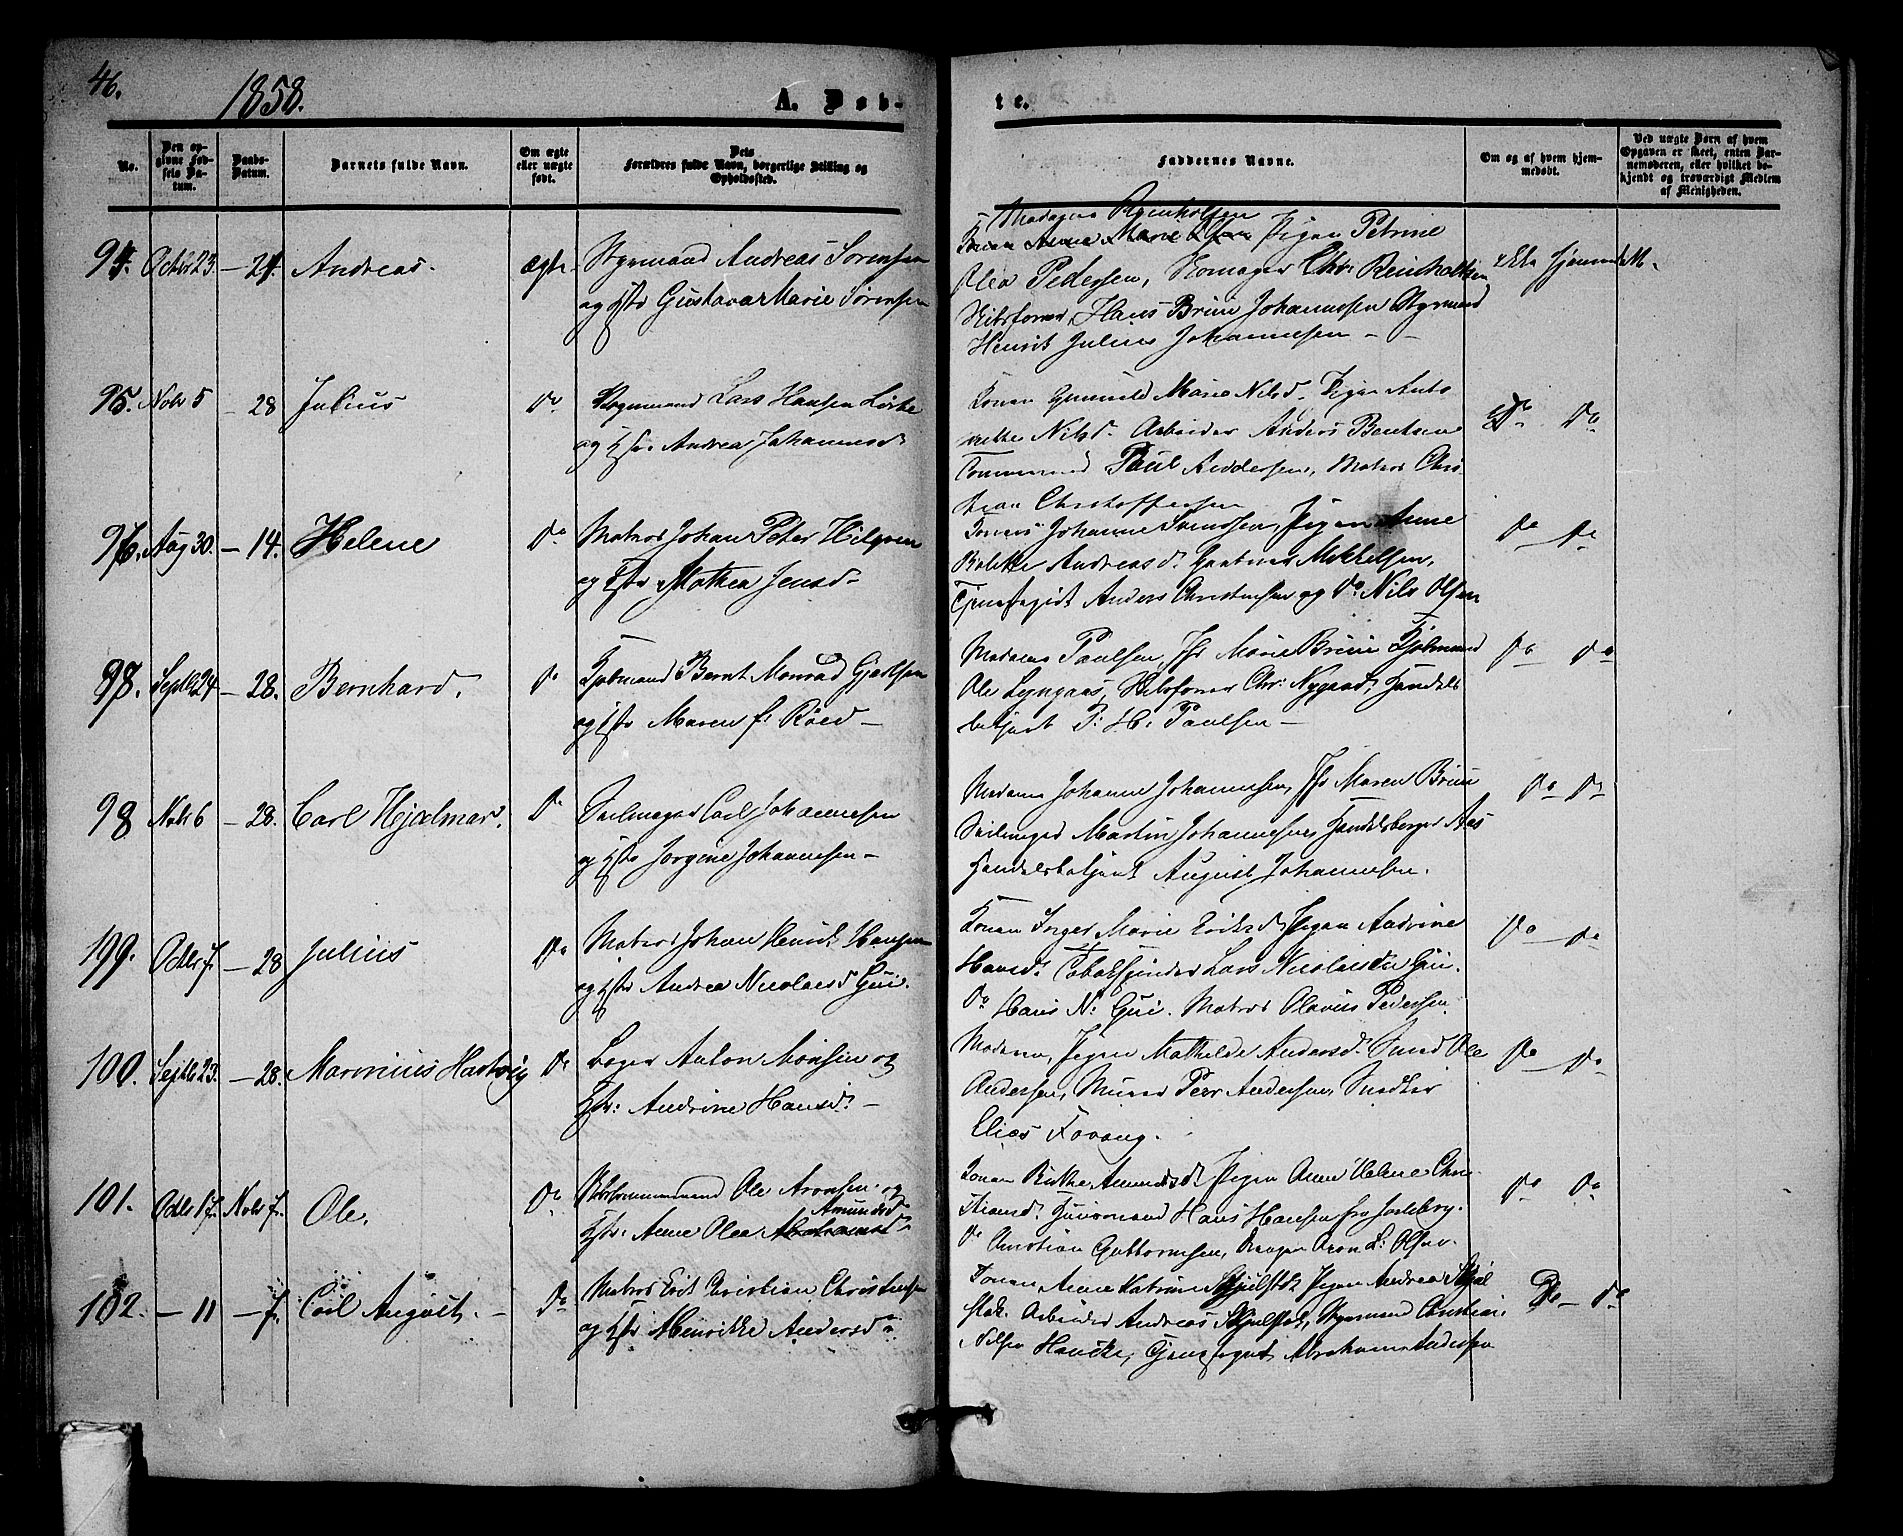 46.
1858.
A. Døb-
te.
No.
Den op-
givne Fød-
sels Da-
tum.
Daabs-
Datum.
Barnets fulde Navn.
Om ægte
eller uægte
født.
Dets
Forældres fulde Navn, borgerlige Stilling og
Opholdssted.
Faddernes Navne.
Om og af hvem hjem-
medøbt.
Ved uægte Barn af hvem
Opgaven er skeet, enten Bar-
nemoderen, eller hvilket be-
kjendt og troværdigt Medlem
af Menigheden.
94. Octbr 23. – 24. Andreas. ægte Styrmand Andreas Sørensen
og Hstr Gustava Marie Sørensen
Madame Reinholtsen
Konen Anne Marie Pigen Petrine
Olea Pedersen, Chr: Reinholtsen
Hans Bruu Johannesen Styrmand
Henrik Julius Johannesen –
ikke hjemmedøbt.
95. Nobr 5 – 28 Julius Do Styrmand Lars Hansen
og Hstr. Andrea Johannesd.
Konen Gunnild Marie Nilsd. Pigen Anto
nette Nilsd. Arbeider Anders Bentsen
Tømmermand Paul Andersen, Matros Chri
stian Christoffersen
Do Do
96. Aug 30. – 14. Helene Do Matros Johan Peter
og Hstr Mathea Jensd.
Konen Johanne Svendsen, Pigen Anne
Bolette Andreasd. Gaatmer Mikkelsen,
Anders Christensen og Do Nils Olsen
Do – Do
97. Septbr 24 – 28. Bernhard. Do Kjøbmand Bernt Monrad Gjertsen
og Hstr Maren f: Röed –
Madame Paulsen, Jfr Marie Bruu Kjøbmand
Ole Lyngaas, Chr: Nygaard, Handels
betjent P: H: Paulsen –
Do – Do
98 Nobr 6 – 28. Carl Hjalmar. Do Seilmager Carl Johannesen
og Hstr Jørgine Johannesen –
Madame Johanne Johannesen, Jfr Maren Bruu
Seilmager Martin Johannesen, Handelsborger Aas
Handelsbetjent August Johannesen.
Do Do
199. Octbr 7. – 28 Julius Do Matros Johan Henrik Hansen
og Hstr Andrea Nicolaesd Gui.
Konen Inger Marie Eriksd. Pigen Andrine
Hansd. Tobakspinder Lars Nicolaisen Gui.
Do Hans N: Gui. Matros Olavus Pedersen.
Do – Do
100. Septbr 23. – 28. Marinius Hartvig Do Bager Anton Monsen og
Hstr: Andrine Hansd. –
Madame, Pigen Mathilde Andersd. Smed Ole
Andersen, Murer Peer Andersen, Snedker
Elias Fovang.
Do – Do
101. Octbr 17. Nobr 7. Ole. Do Ole Aronsen og
Amundsd
Hstr: Anne Olea Abrahamsd.
Konen Birthe Amundsd. Pigen Anne Helene Chri
stiansd. Huusmand Hans Hansen fra
Do Christian Guttormsen, Drengen Aron L: Olsen.
Do – Do
102. – 11 – 7. Carl August. – Do Matros Erik Christian Christensen
og Hstr Henrikke Andersd.
Konen Anne Katrine Skjelstd. Pigen Andrea Skjel
stad. Arbeider Andreas Skjelstad, Styrmand Christian
Nilsen Hancke, Abraham Andersen
Do – Do